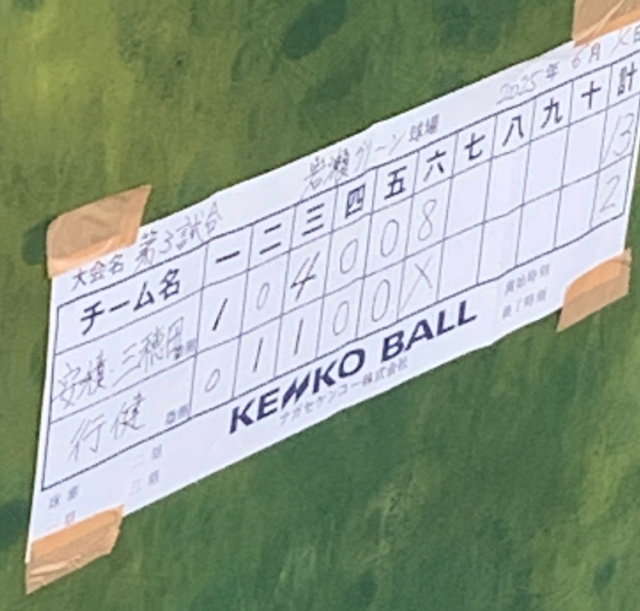 岩瀬グリーン球場 2025年6月 日
大会名 第3試合
チーム名 一 二 三 四 五 六 七 八 九 十 計
安積・三穂田 1 0 4 0 0 8 13
行健 0 1 1 0 0 X 2
KENKO BALL
ナガセケンコー株式会社
開始時刻
終了時刻
球審 二塁
一塁 三塁